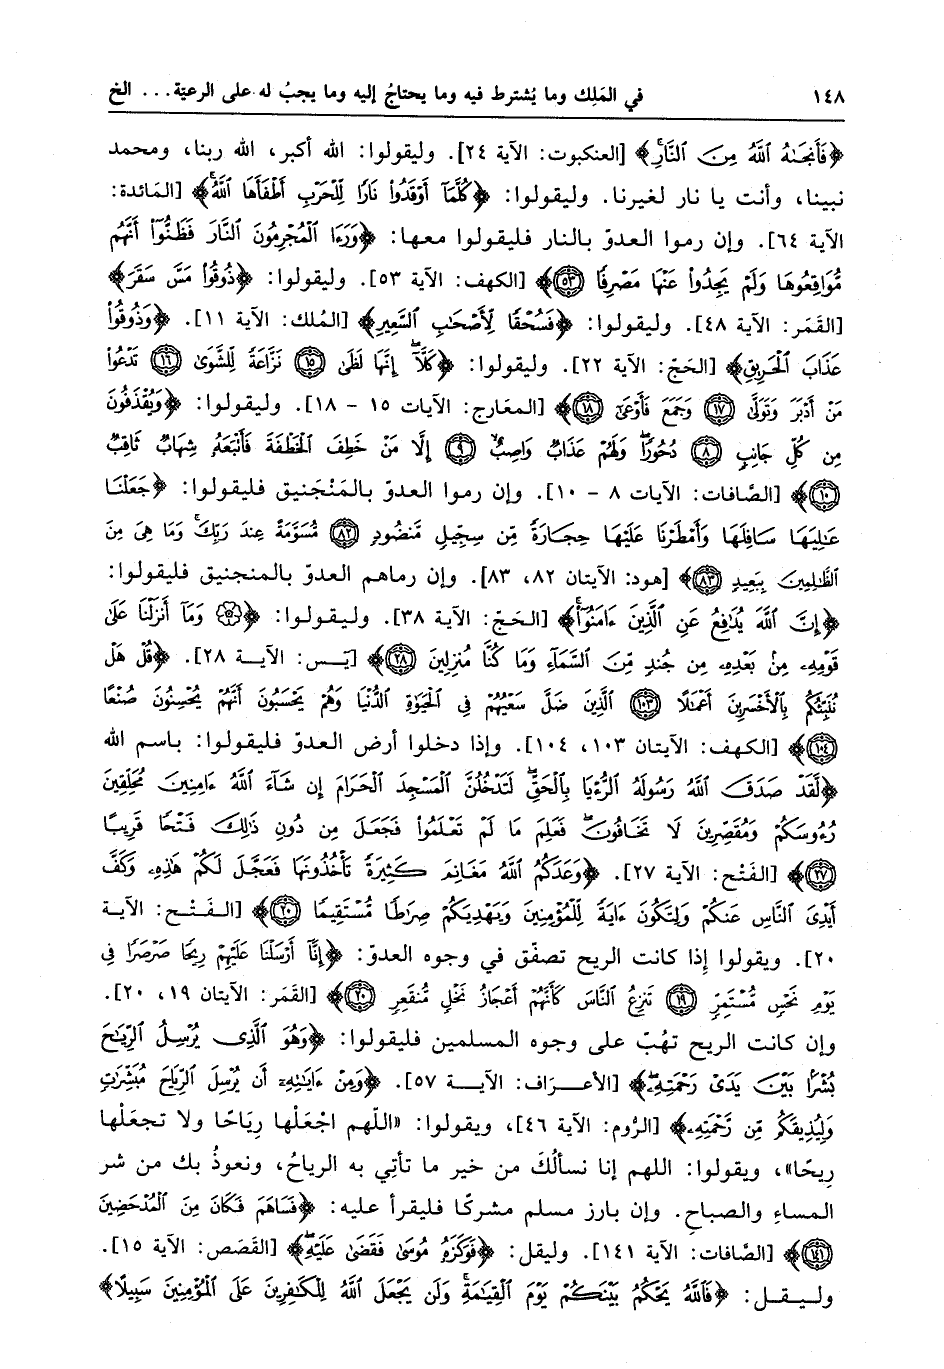 ١٤٨ في المَلِك وما يُشترط فيه وما يحتاجُ إليه وما يجبُ له على الرعيّة... الخ
﴿فَأَنجَىٰهُ ٱللَّهُ مِنَ ٱلنَّارِۚ﴾ [العنكبوت: الآية ٢٤]. وليقولوا: الله أكبر، الله ربنا، ومحمد
نبينا، وأنت يا نار لغيرنا. وليقولوا: ﴿كُلَّمَآ أَوْقَدُوا۟ نَارًا لِّلْحَرْبِ أَطْفَأَهَا ٱللَّهُۚ﴾ [المَائدة:
الآية ٦٤]. وإن رموا العدوّ بالنار فليقولوا معها: ﴿وَرَءَا ٱلْمُجْرِمُونَ ٱلنَّارَ فَظَنُّوٓا۟ أَنَّهُم
مُّوَاقِعُوهَا وَلَمْ يَجِدُوا۟ عَنْهَا مَصْرِفًا ٥٣﴾ [الكهف: الآية ٥٣]. وليقولوا: ﴿ذُوقُوا۟ مَسَّ سَقَرَ﴾
[القَمَر: الآية ٤٨]. وليقولوا: ﴿فَسُحْقًا لِّأَصْحَٰبِ ٱلسَّعِيرِ﴾ [المُلك: الآية ١١]. ﴿وَذُوقُوا۟
عَذَابَ ٱلْحَرِيقِ﴾ [الحَجّ: الآية ٢٢]. وليقولوا: ﴿كَلَّآۖ إِنَّهَا لَظَىٰ ١٥ نَزَّاعَةً لِّلشَّوَىٰ ١٦ تَدْعُوا۟
مَنْ أَدْبَرَ وَتَوَلَّىٰ ١٧ وَجَمَعَ فَأَوْعَىٰٓ ١٨﴾ [المعَارج: الآيات ١٥ - ١٨]. وليقولوا: ﴿وَيُقْذَفُونَ
مِن كُلِّ جَانِبٍ ٨ دُحُورًاۖ وَلَهُمْ عَذَابٌ وَاصِبٌ ٩ إِلَّا مَنْ خَطِفَ ٱلْخَطْفَةَ فَأَتْبَعَهُۥ شِهَابٌ ثَاقِبٌ
١٠﴾ [الصَّافات: الآيات ٨ - ١٠]. وإن رموا العدوّ بالمَنْجنيق فليقولوا: ﴿جَعَلْنَا
عَٰلِيَهَا سَافِلَهَا وَأَمْطَرْنَا عَلَيْهَا حِجَارَةً مِّن سِجِّيلٍ مَّنضُودٍ ٨٢ مُّسَوَّمَةً عِندَ رَبِّكَۖ وَمَا هِىَ مِنَ
ٱلظَّٰلِمِينَ بِبَعِيدٍ ٨٣﴾ [هود: الآيتان ٨٢، ٨٣]. وإن رماهم العدوّ بالمنجنيق فليقولوا:
﴿إِنَّ ٱللَّهَ يُدَٰفِعُ عَنِ ٱلَّذِينَ ءَامَنُوٓا۟ۗ﴾ [الحَجّ: الآية ٣٨]. وليقولوا: ﴿۞ وَمَآ أَنزَلْنَا عَلَىٰ
قَوْمِهِۦ مِنۢ بَعْدِهِۦ مِن جُندٍ مِّنَ ٱلسَّمَآءِ وَمَا كُنَّا مُنزِلِينَ ٢٨﴾ [يَس: الآية ٢٨]. ﴿قُلْ هَلْ
نُنَبِّئُكُم بِٱلْأَخْسَرِينَ أَعْمَٰلًا ١٠٣ ٱلَّذِينَ ضَلَّ سَعْيُهُمْ فِى ٱلْحَيَوٰةِ ٱلدُّنْيَا وَهُمْ يَحْسَبُونَ أَنَّهُمْ يُحْسِنُونَ صُنْعًا
١٠٤﴾ [الكهف: الآيتان ١٠٣، ١٠٤]. وإذا دخلوا أرض العدوّ فليقولوا: باسم الله
﴿لَّقَدْ صَدَقَ ٱللَّهُ رَسُولَهُ ٱلرُّءْيَا بِٱلْحَقِّۖ لَتَدْخُلُنَّ ٱلْمَسْجِدَ ٱلْحَرَامَ إِن شَآءَ ٱللَّهُ ءَامِنِينَ مُحَلِّقِينَ
رُءُوسَكُمْ وَمُقَصِّرِينَ لَا تَخَافُونَۖ فَعَلِمَ مَا لَمْ تَعْلَمُوا۟ فَجَعَلَ مِن دُونِ ذَٰلِكَ فَتْحًا قَرِيبًا
٢٧﴾ [الفَتْح: الآية ٢٧]. ﴿وَعَدَكُمُ ٱللَّهُ مَغَانِمَ كَثِيرَةً تَأْخُذُونَهَا فَعَجَّلَ لَكُمْ هَٰذِهِۦ وَكَفَّ
أَيْدِىَ ٱلنَّاسِ عَنكُمْ وَلِتَكُونَ ءَايَةً لِّلْمُؤْمِنِينَ وَيَهْدِيَكُمْ صِرَٰطًا مُّسْتَقِيمًا ٢٠﴾ [الفَتْح: الآية
٢٠]. ويقولوا إذا كانت الريح تصفّق في وجوه العدوّ: ﴿إِنَّآ أَرْسَلْنَا عَلَيْهِمْ رِيحًا صَرْصَرًا فِى
يَوْمِ نَحْسٍ مُّسْتَمِرٍّ ١٩ تَنزِعُ ٱلنَّاسَ كَأَنَّهُمْ أَعْجَازُ نَخْلٍ مُّنقَعِرٍ ٢٠﴾ [القَمَر: الآيتان ١٩، ٢٠].
وإن كانت الريح تهُبّ على وجوه المسلمين فليقولوا: ﴿وَهُوَ ٱلَّذِى يُرْسِلُ ٱلرِّيَٰحَ
بُشْرًۢا بَيْنَ يَدَىْ رَحْمَتِهِۦۖ﴾ [الأعرَاف: الآية ٥٧]. ﴿وَمِنْ ءَايَٰتِهِۦٓ أَن يُرْسِلَ ٱلرِّيَاحَ مُبَشِّرَٰتٍ
وَلِيُذِيقَكُم مِّن رَّحْمَتِهِۦ﴾ [الرُّوم: الآية ٤٦]، ويقولوا: «اللّهم اجْعَلْها رِيَاحًا ولا تجعَلْها
رِيحًا»، ويقولوا: اللهم إنا نسألُكَ من خير ما تأتِي به الرياحُ، ونعوذُ بك من شر
المساءِ والصباحِ. وإن بارز مسلم مشركًا فليقرأ عليه: ﴿فَسَاهَمَ فَكَانَ مِنَ ٱلْمُدْحَضِينَ
١٤١﴾ [الصَّافات: الآية ١٤١]. وليقل: ﴿فَوَكَزَهُۥ مُوسَىٰ فَقَضَىٰ عَلَيْهِۖ﴾ [القَصَص: الآية ١٥].
وليقل: ﴿فَٱللَّهُ يَحْكُمُ بَيْنَكُمْ يَوْمَ ٱلْقِيَٰمَةِۗ وَلَن يَجْعَلَ ٱللَّهُ لِلْكَٰفِرِينَ عَلَى ٱلْمُؤْمِنِينَ سَبِيلًا﴾